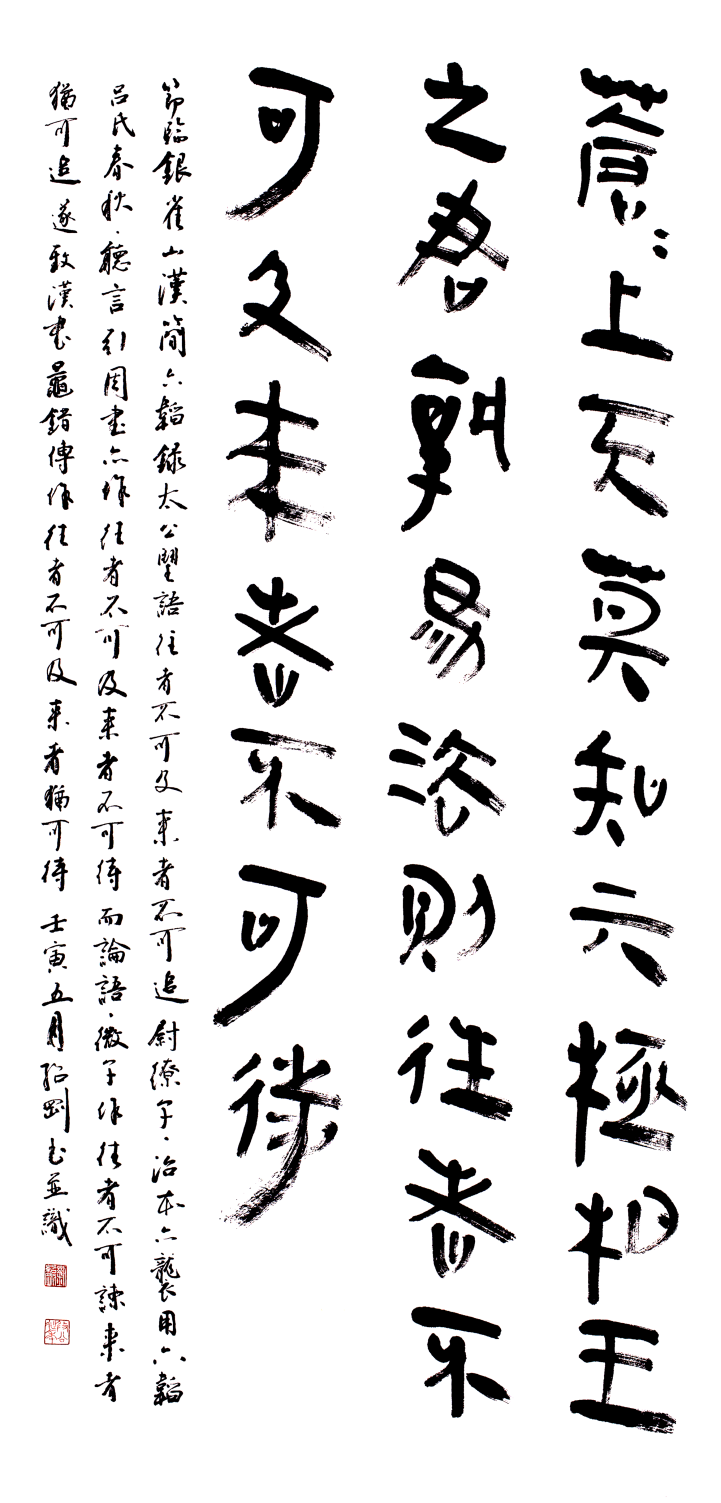 蒼〻上天莫知亓極柏王
之君孰爲法則往者不
可及來者不可待
節臨銀雀山漢簡六韜錄太公望語往者不可及來者不可追尉繚子·治本亦襲用六韜
呂氏春秋·聽言引周書亦作往者不可及來者不可待而論語·微子作往者不可諫來者
猶可追遂致漢書鼂錯傳作往者不可及來者猶可待壬寅五月紹剛書並識